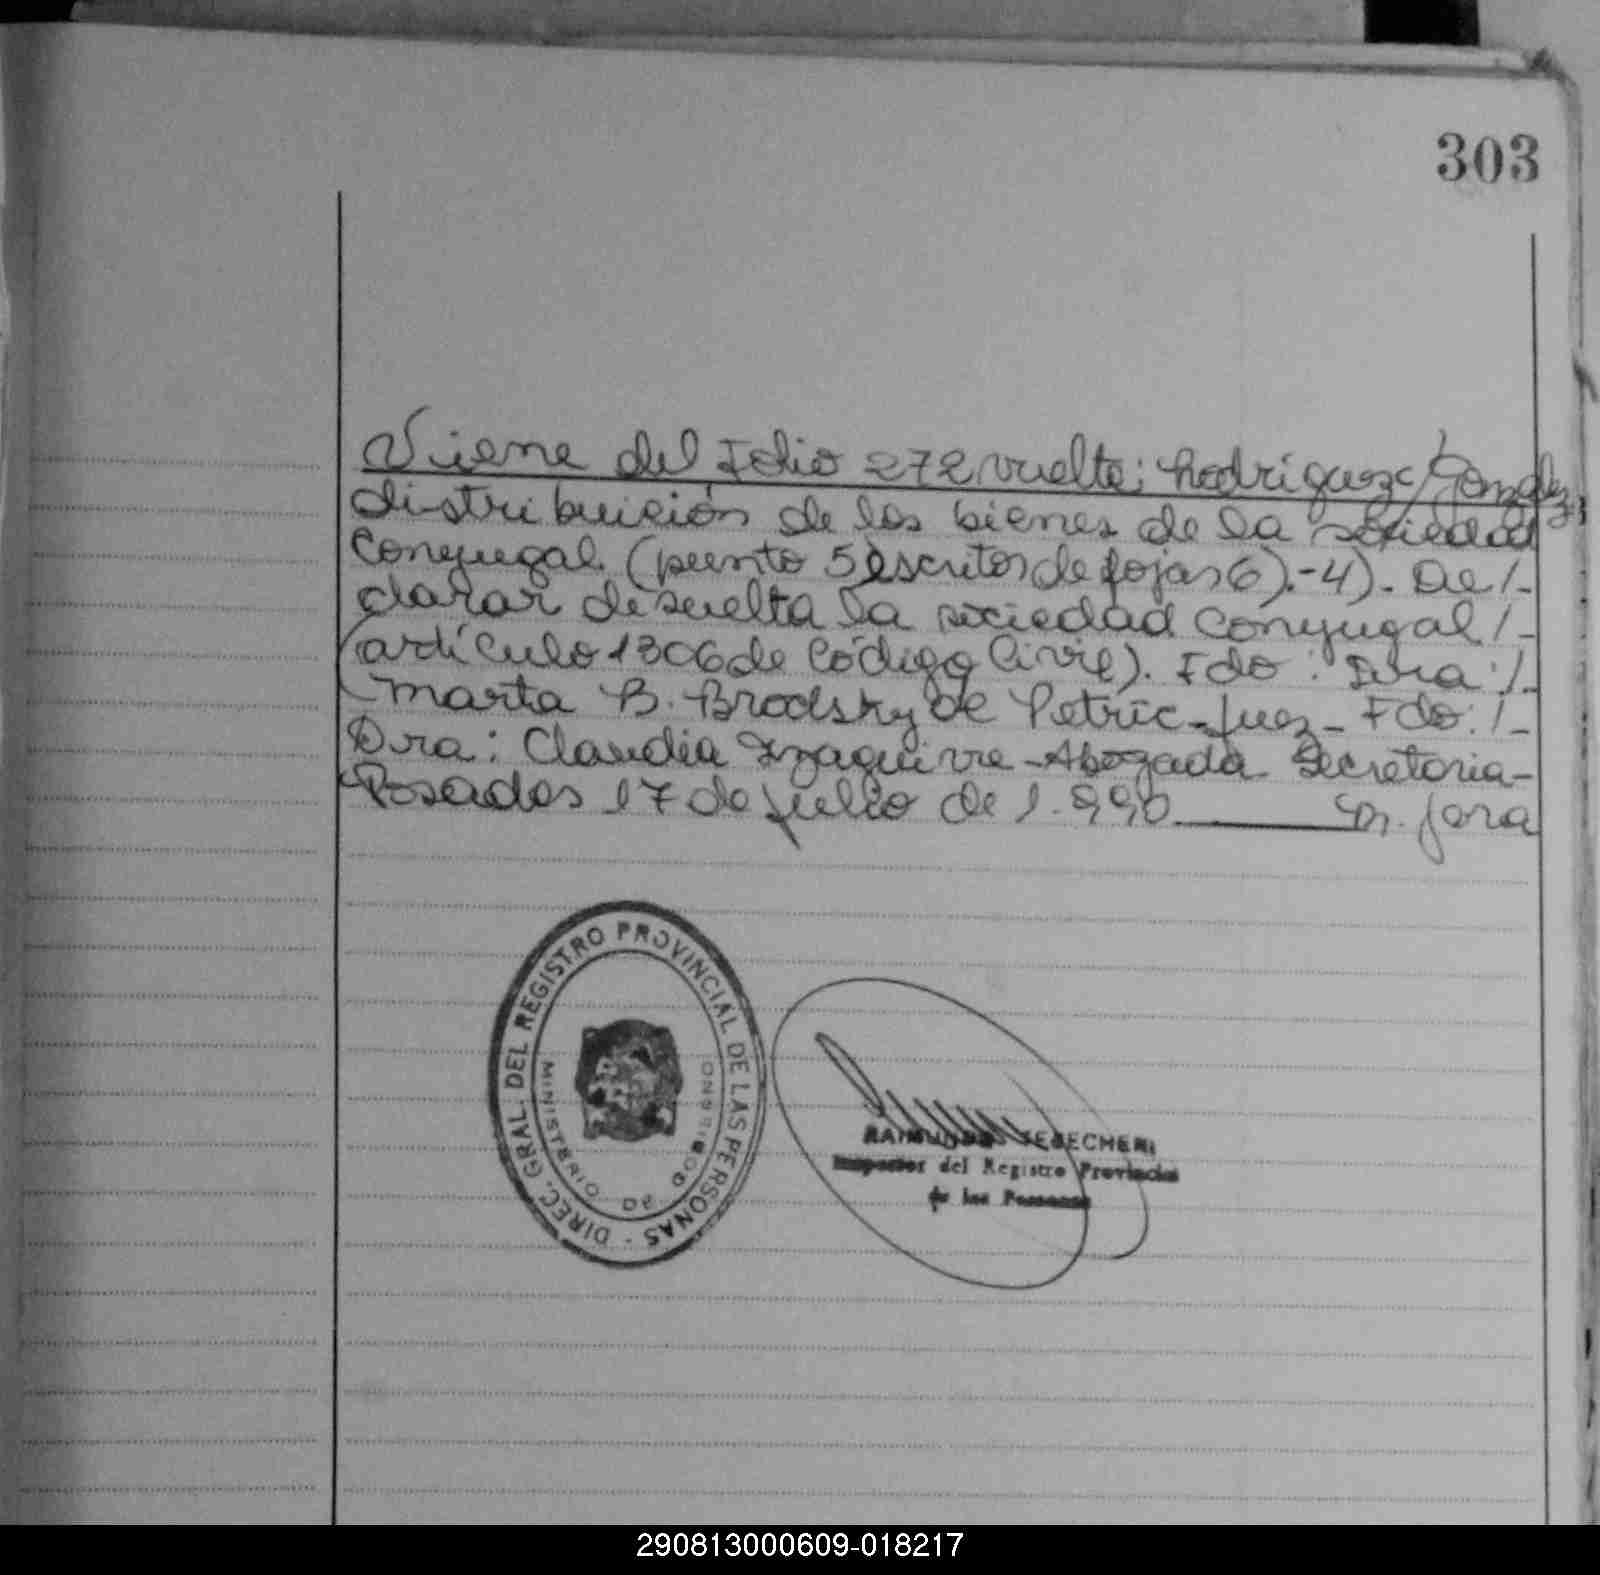 303
Viene del Folio 272 vuelta; Rodriguez/Gonzalez;
distribuición de los bienes de la sociedad
Conyugal. (punto 5 escritos de fojas 6).-4). De/-
clarar disuelta la sociedad conyugal/-
(artículo 1306 de Código Civil). Fdo: Dra:/-
Marta B. Brodsky de Petric-Juez- Fdo:/-
Dra: Claudia Izaguirre-Abogada Secretaria-
Posadas 17 de julio de 1.990 M. Jara
DIREC. GRAL. DEL REGISTRO PROVINCIAL DE LAS PERSONAS -
MINISTERIO DE GOBIERNO
RAIMUNDO
Inspector del Registro Provincial
de las Personas
290813000609-018217